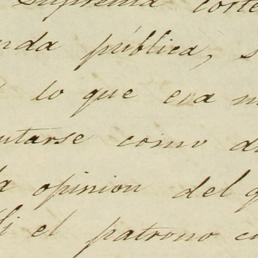 Suprema corte
nda pública, s
lo que era m
utarse como d
a opinion del g
i el patrono c